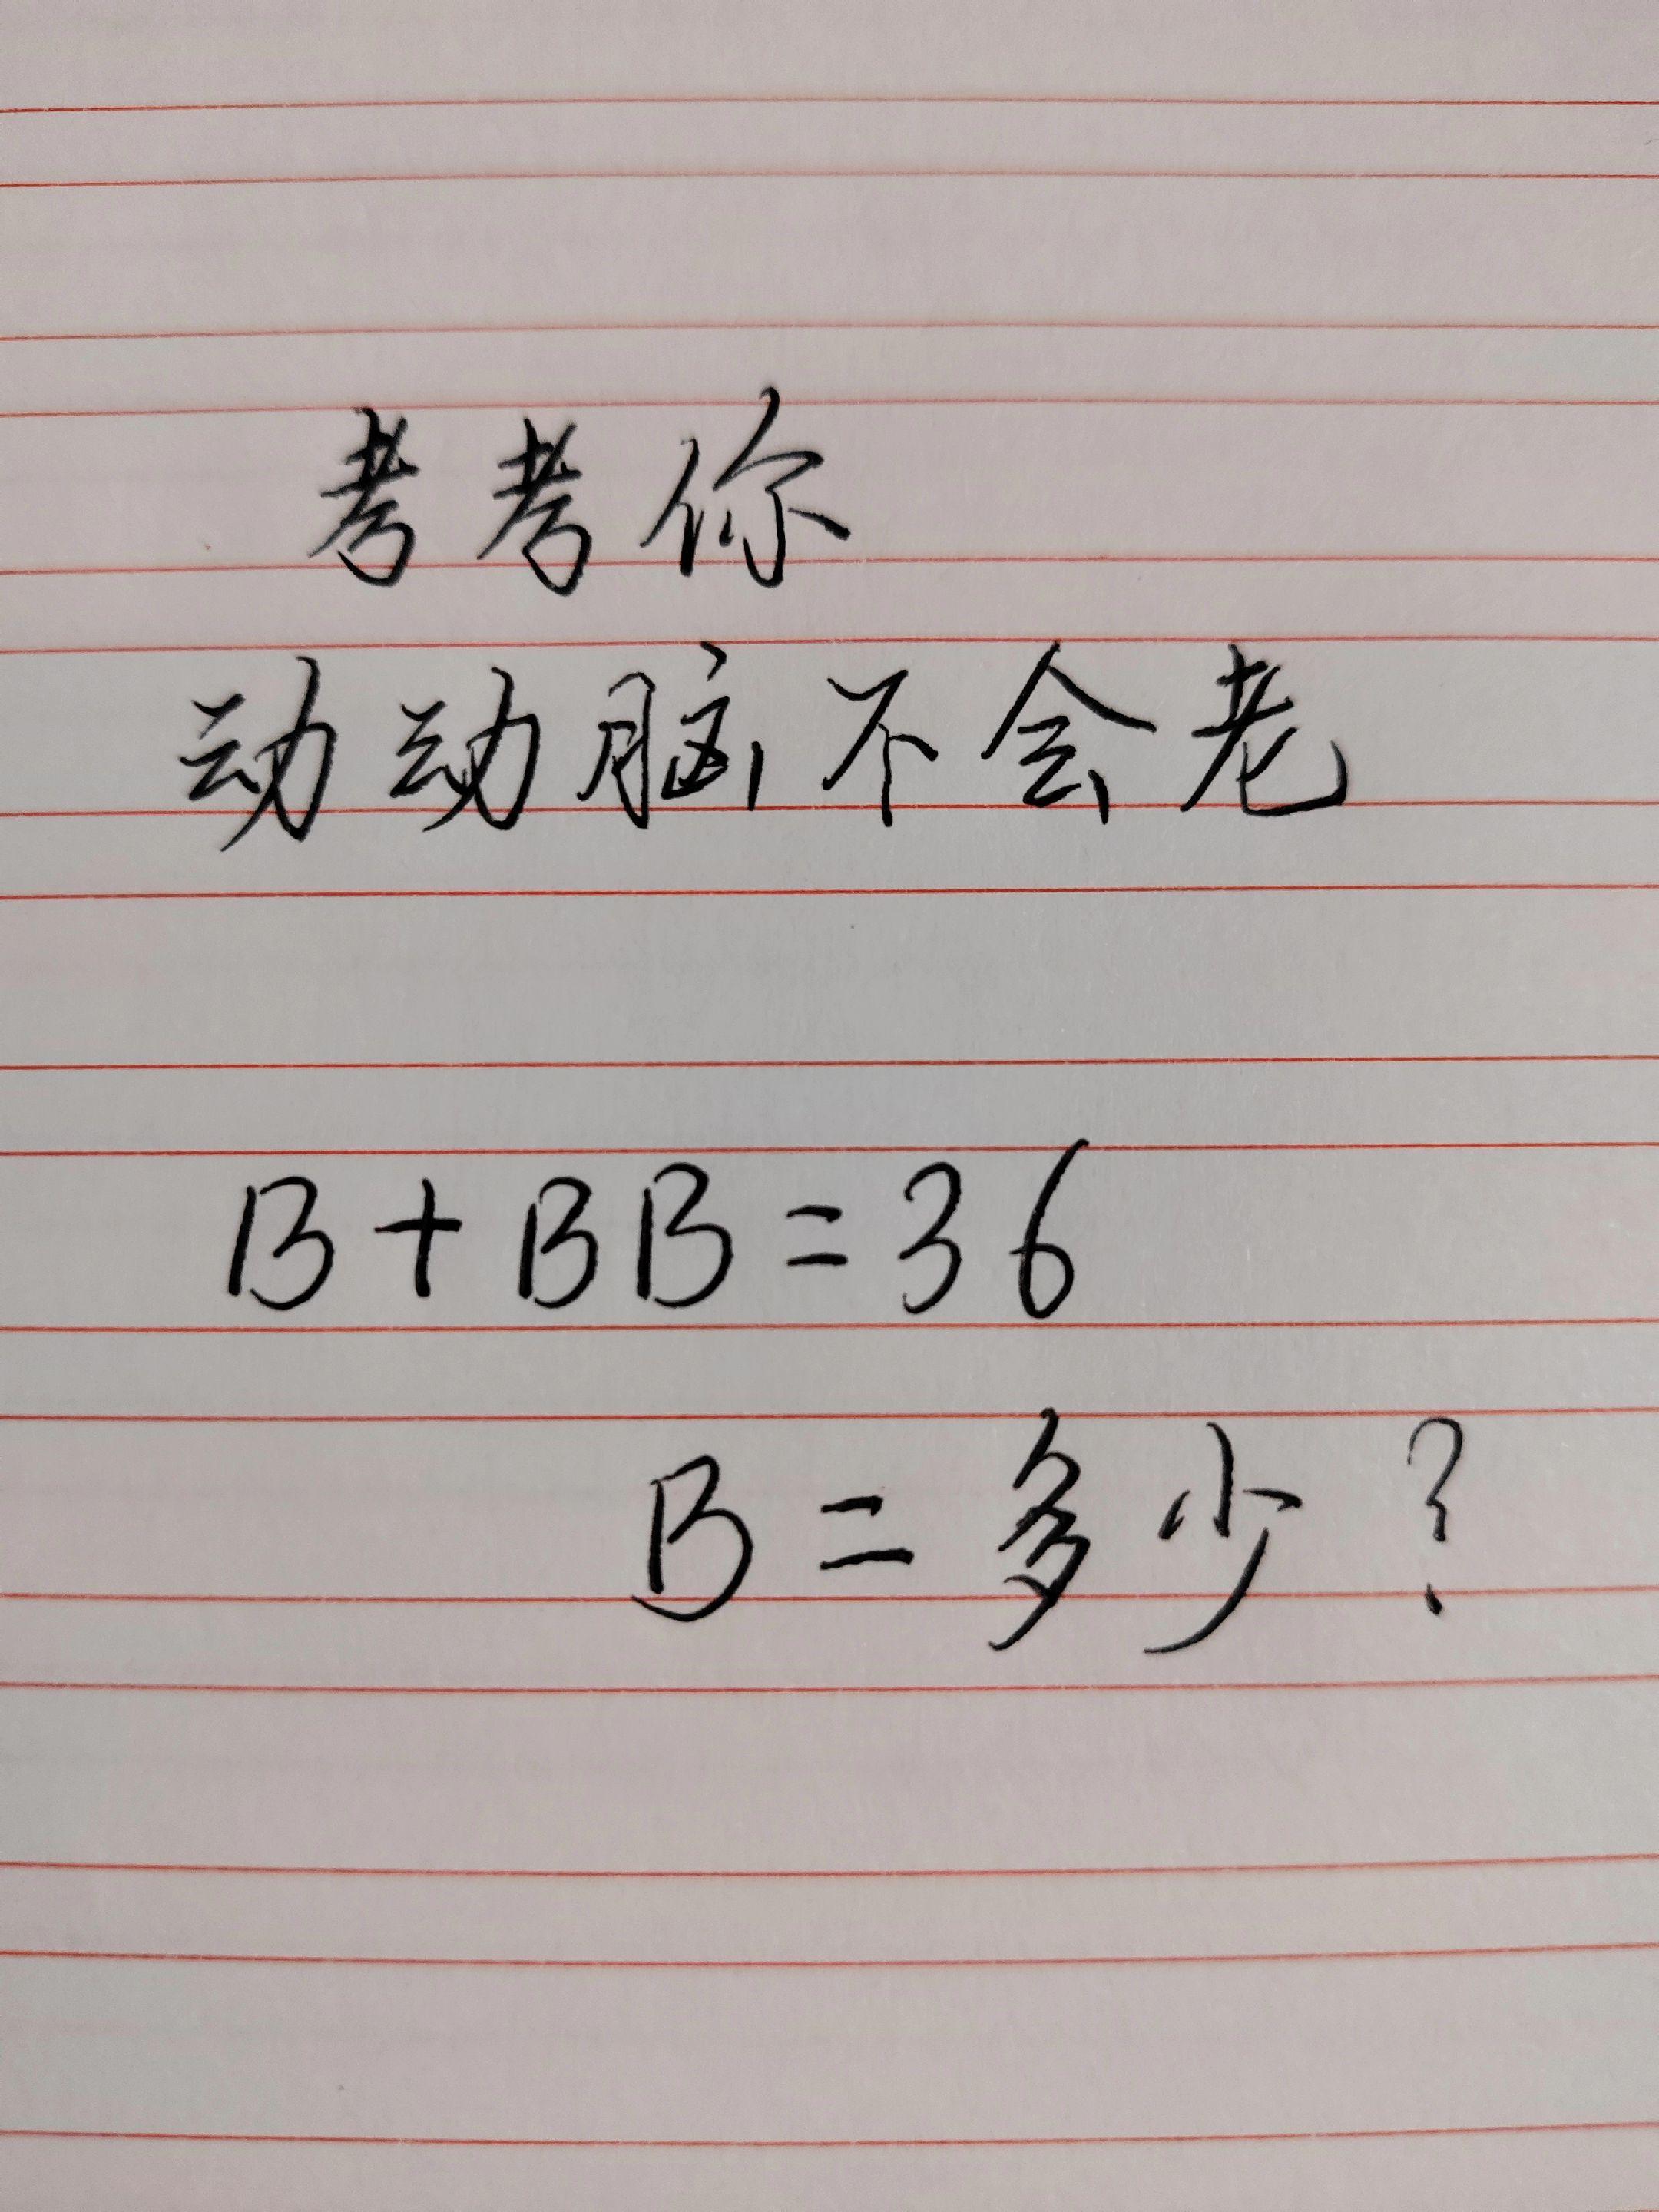 考考你
动动脑不会老
B+BB=36
B=多少?